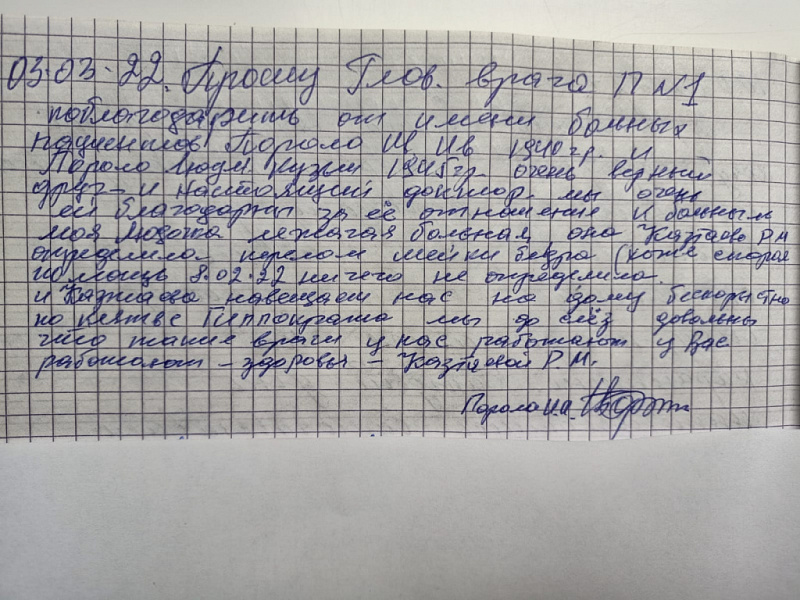 03.03.22. Прошу Глав. врача П №1
поблагодарить от имени больных
пациентов Пороло И Ив 1940 гр. и
Пороло Людм Кузьм 1945 гр. очень верный
друг - и настоящий доктор. мы очень
ей благодарны за её отношение к больным
моя Людочка лежачая больная она Казтаева Р.М
определила перелом шейки бедра (даже скорая
помощь 8.02.22 ничего не определила.
и навещает нас на дому бескорыстно
по клятве Гиппократа мы до слёз довольны
что такие врачи у нас работают у Вас
работают - здоровья - Р.М.
Пороло